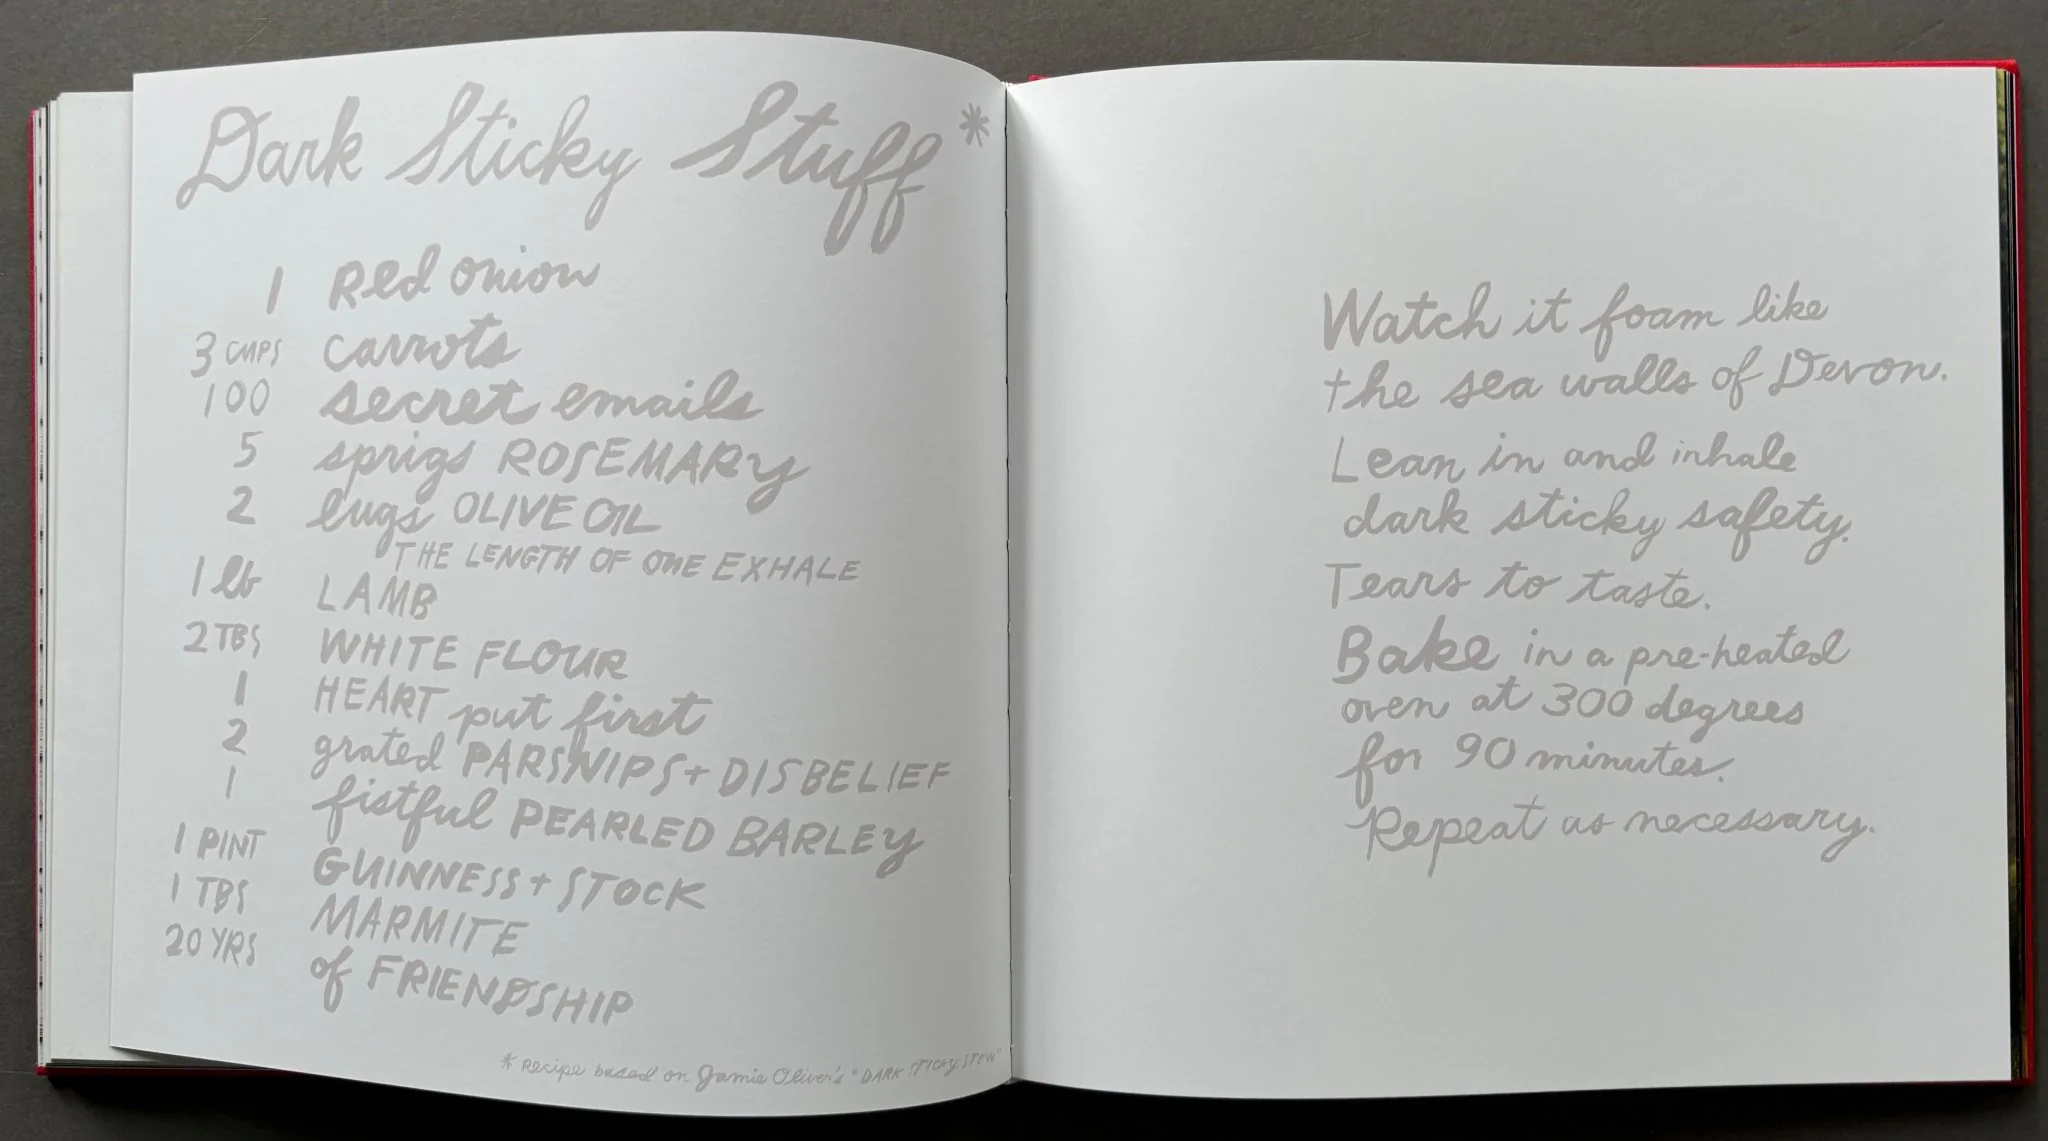 Dark Sticky Stuff*
1 Red onion
3 CUPS carrots
100 secret emails
5 sprigs ROSEMARY
2 lugs OLIVE OIL
THE LENGTH OF one EXHALE
1 lb LAMB
2 TBS WHITE FLOUR
1 HEART put first
2 grated PARSNIPS + DISBELIEF
1 fistful PEARLED BARLEY
1 PINT GUINNESS + STOCK
1 TBS MARMITE
20 YRS of FRIENDSHIP
* Recipe based on Jamie Oliver's "DARK STICKY STEW"
Watch it foam like
the sea walls of Devon.
Lean in and inhale
dark sticky safety.
Tears to taste.
Bake in a pre-heated
oven at 300 degrees
for 90 minutes.
Repeat as necessary.